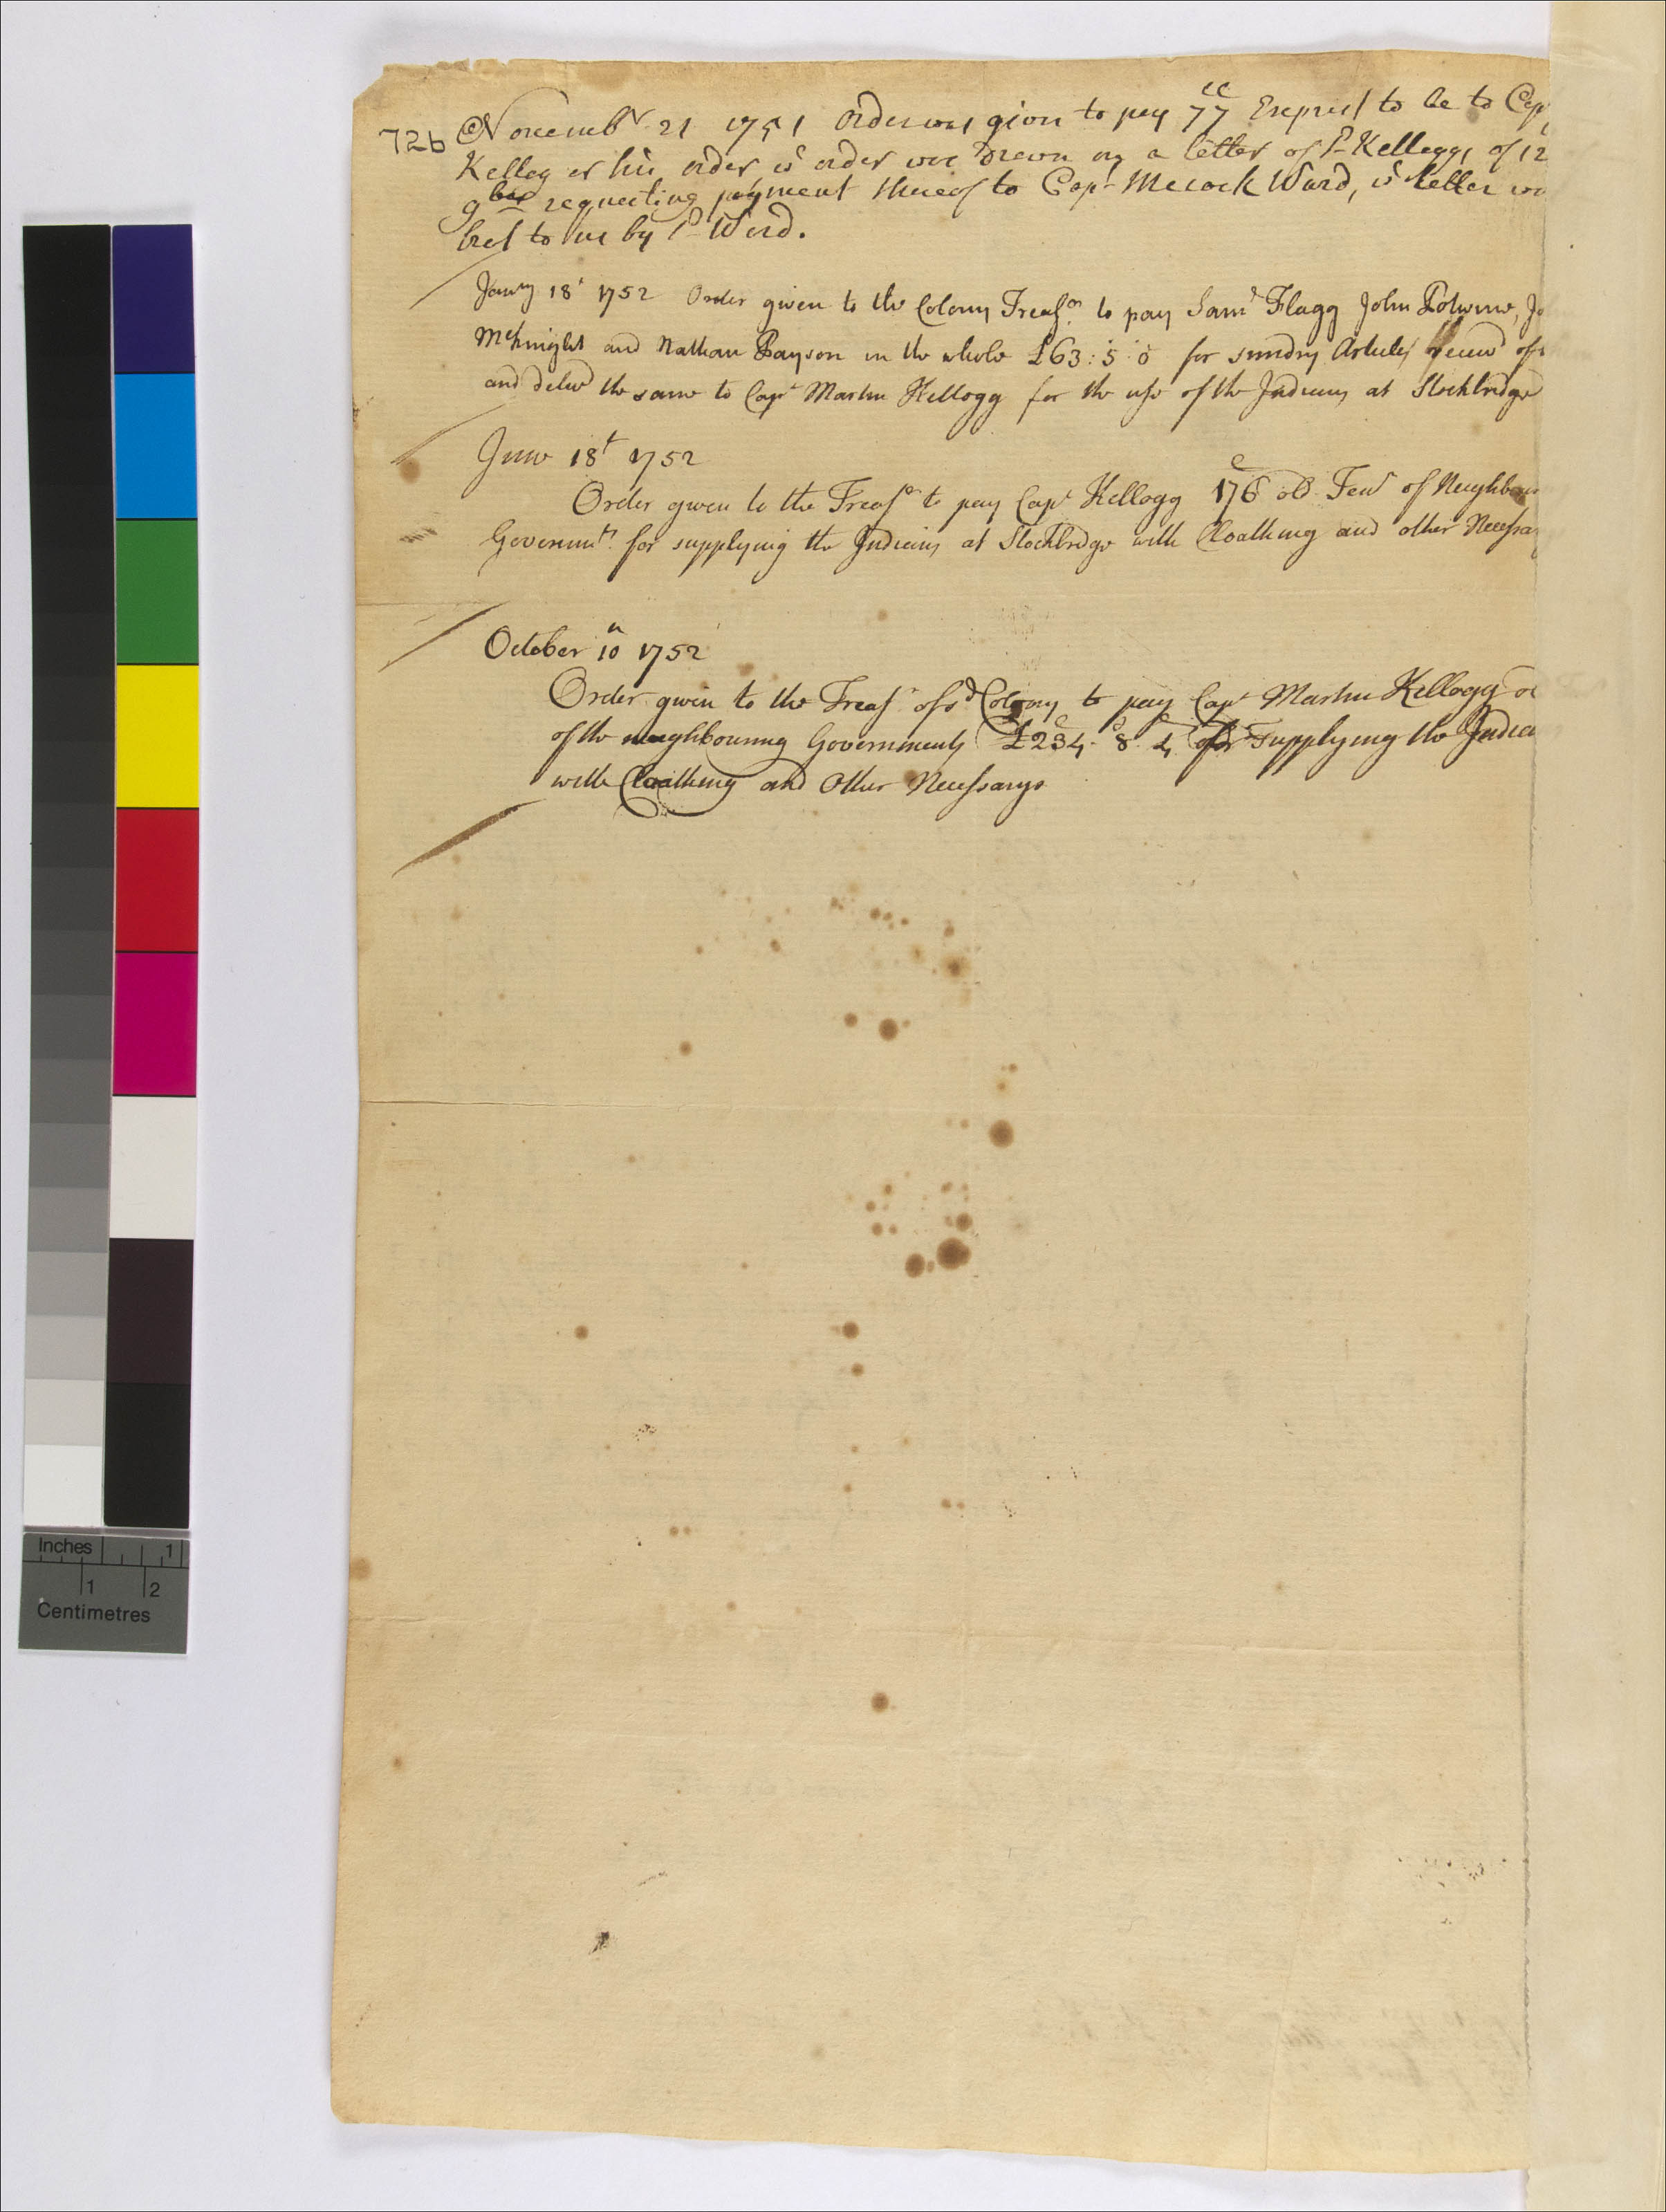 72b Novembr 21 1751 Order was given to pay 77 to be to Cap
Kelleg or his order wc order was Drawn on a letter of sd Kelloggs of 12
9ber requesting payment thereof to Capt Mecock Ward, wc letter
to us by sd Ward.
Janry 18t 1752 Order given to the Colony Treasor to pay Samll Flagg John Potwine, Jo
McKnight and Nathan Payson in the whole £63:5:0 for sundry Articles of
and delivd the same to Capt Martin Kellogg for the use of the Indians at Stockbridge
June 18t 1752
Order given to the Treasor to pay Capt Kellogg 176£ old Tenr of Neighbour
Governmts for supplying the Indians at Stockbridge with Cloathing and other Necessa
October 10th 1752
Order given to the Treasr of sd Colony to pay Capt Martin Kellogg
of the neighbouring Governments £234. 8. 4 for Supplying the India
with Cloathing and Other Necessarys
Inches 1
1 2
Centimetres